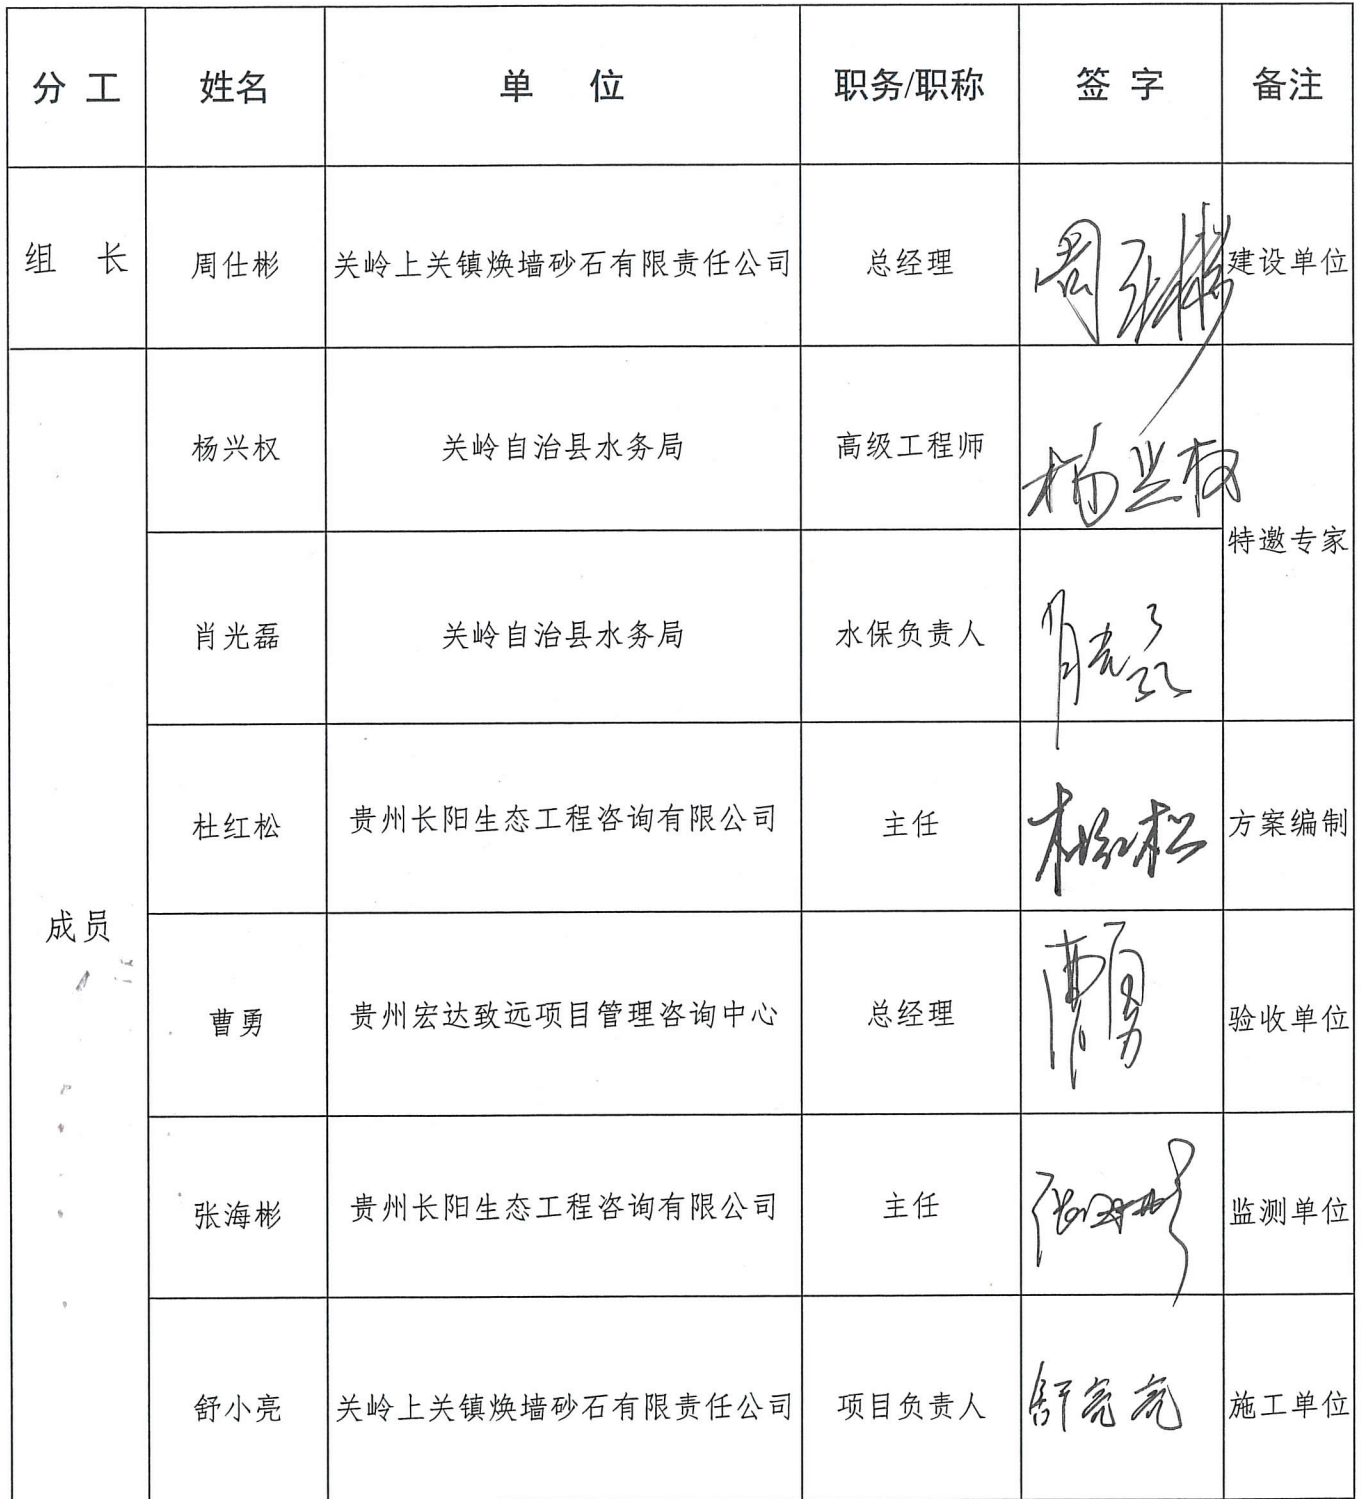 分 工 姓名 单 位 职务/职称 签 字 备注
组 长 周仕彬 关岭上关镇焕墙砂石有限责任公司 总经理 周仕彬 建设单位
杨兴权 关岭自治县水务局 高级工程师 杨兴权
特邀专家
肖光磊 关岭自治县水务局 水保负责人 肖光磊
杜红松 贵州长阳生态工程咨询有限公司 主任 杜红松 方案编制
成员
曹勇 贵州宏达致远项目管理咨询中心 总经理 曹勇 验收单位
张海彬 贵州长阳生态工程咨询有限公司 主任 张海彬 监测单位
舒小亮 关岭上关镇焕墙砂石有限责任公司 项目负责人 舒亮亮 施工单位